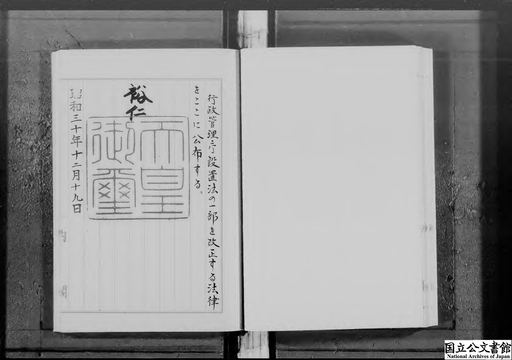 行政管理庁設置法の一部を改正する法律
をここに公布する。
裕仁
天皇
御璽
昭和三十年十二月十九日
国立公文書館
National Archives of Japan